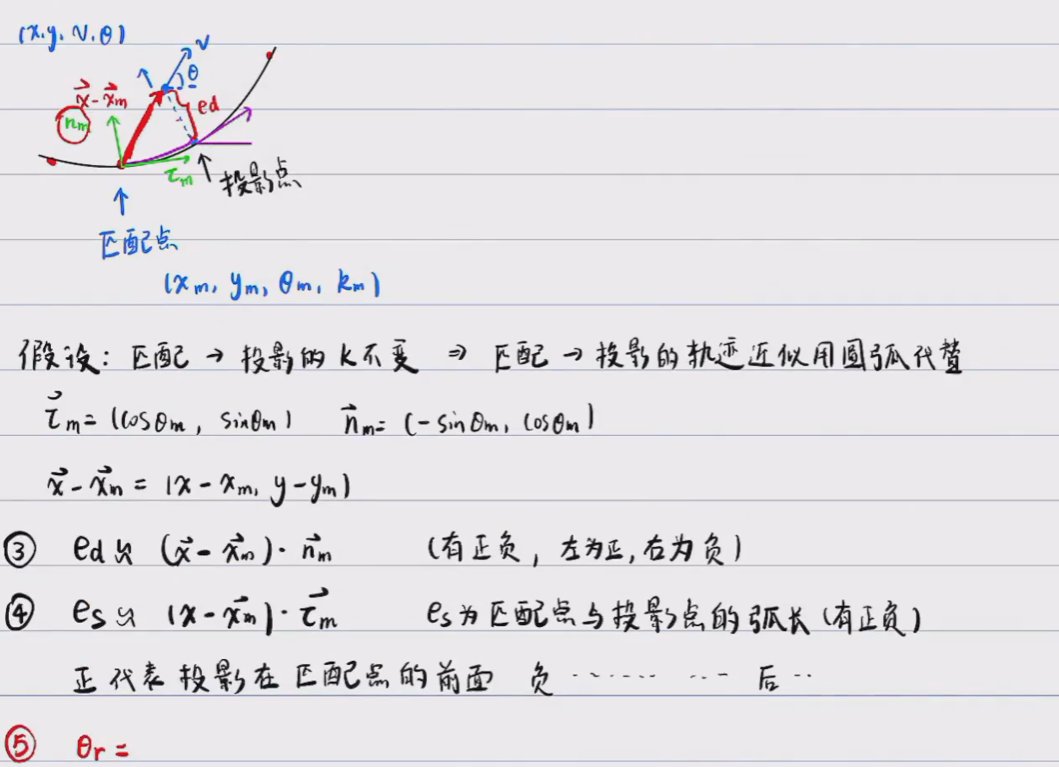 (x.y, v.θ)
v
θ
x⃗ - x⃗m
ed
nm
τm
投影点
匹配点
(xm, ym, θm, km)
假设: 匹配 → 投影的 k 不变 ⇒ 匹配 → 投影的轨迹近似用圆弧代替
τ⃗m = (cosθm, sinθm) n⃗m = (-sinθm, cosθm)
x⃗ - x⃗m = (x - xm, y - ym)
③ ed ≈ (x⃗ - x⃗m)· n⃗m (有正负, 左为正, 右为负)
④ es ≈ (x - x⃗m)· τ⃗m es为匹配点与投影点的弧长 (有正负)
正代表投影在匹配点的前面 负 ······ ··· 后 ··
⑤ θr =